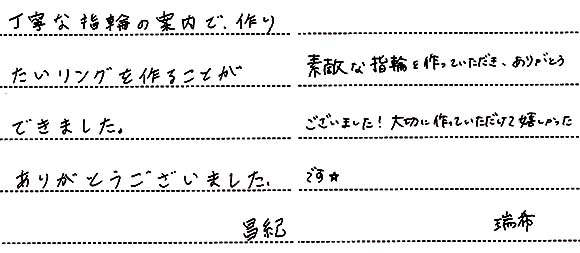 丁寧な指輪の案内で、作り
たいリングを作ることが
できました。
ありがとうございました。
昌紀
素敵な指輪を作っていただき、ありがとう
ございました！大切に作っていただけて嬉しかった
です☆
瑞希